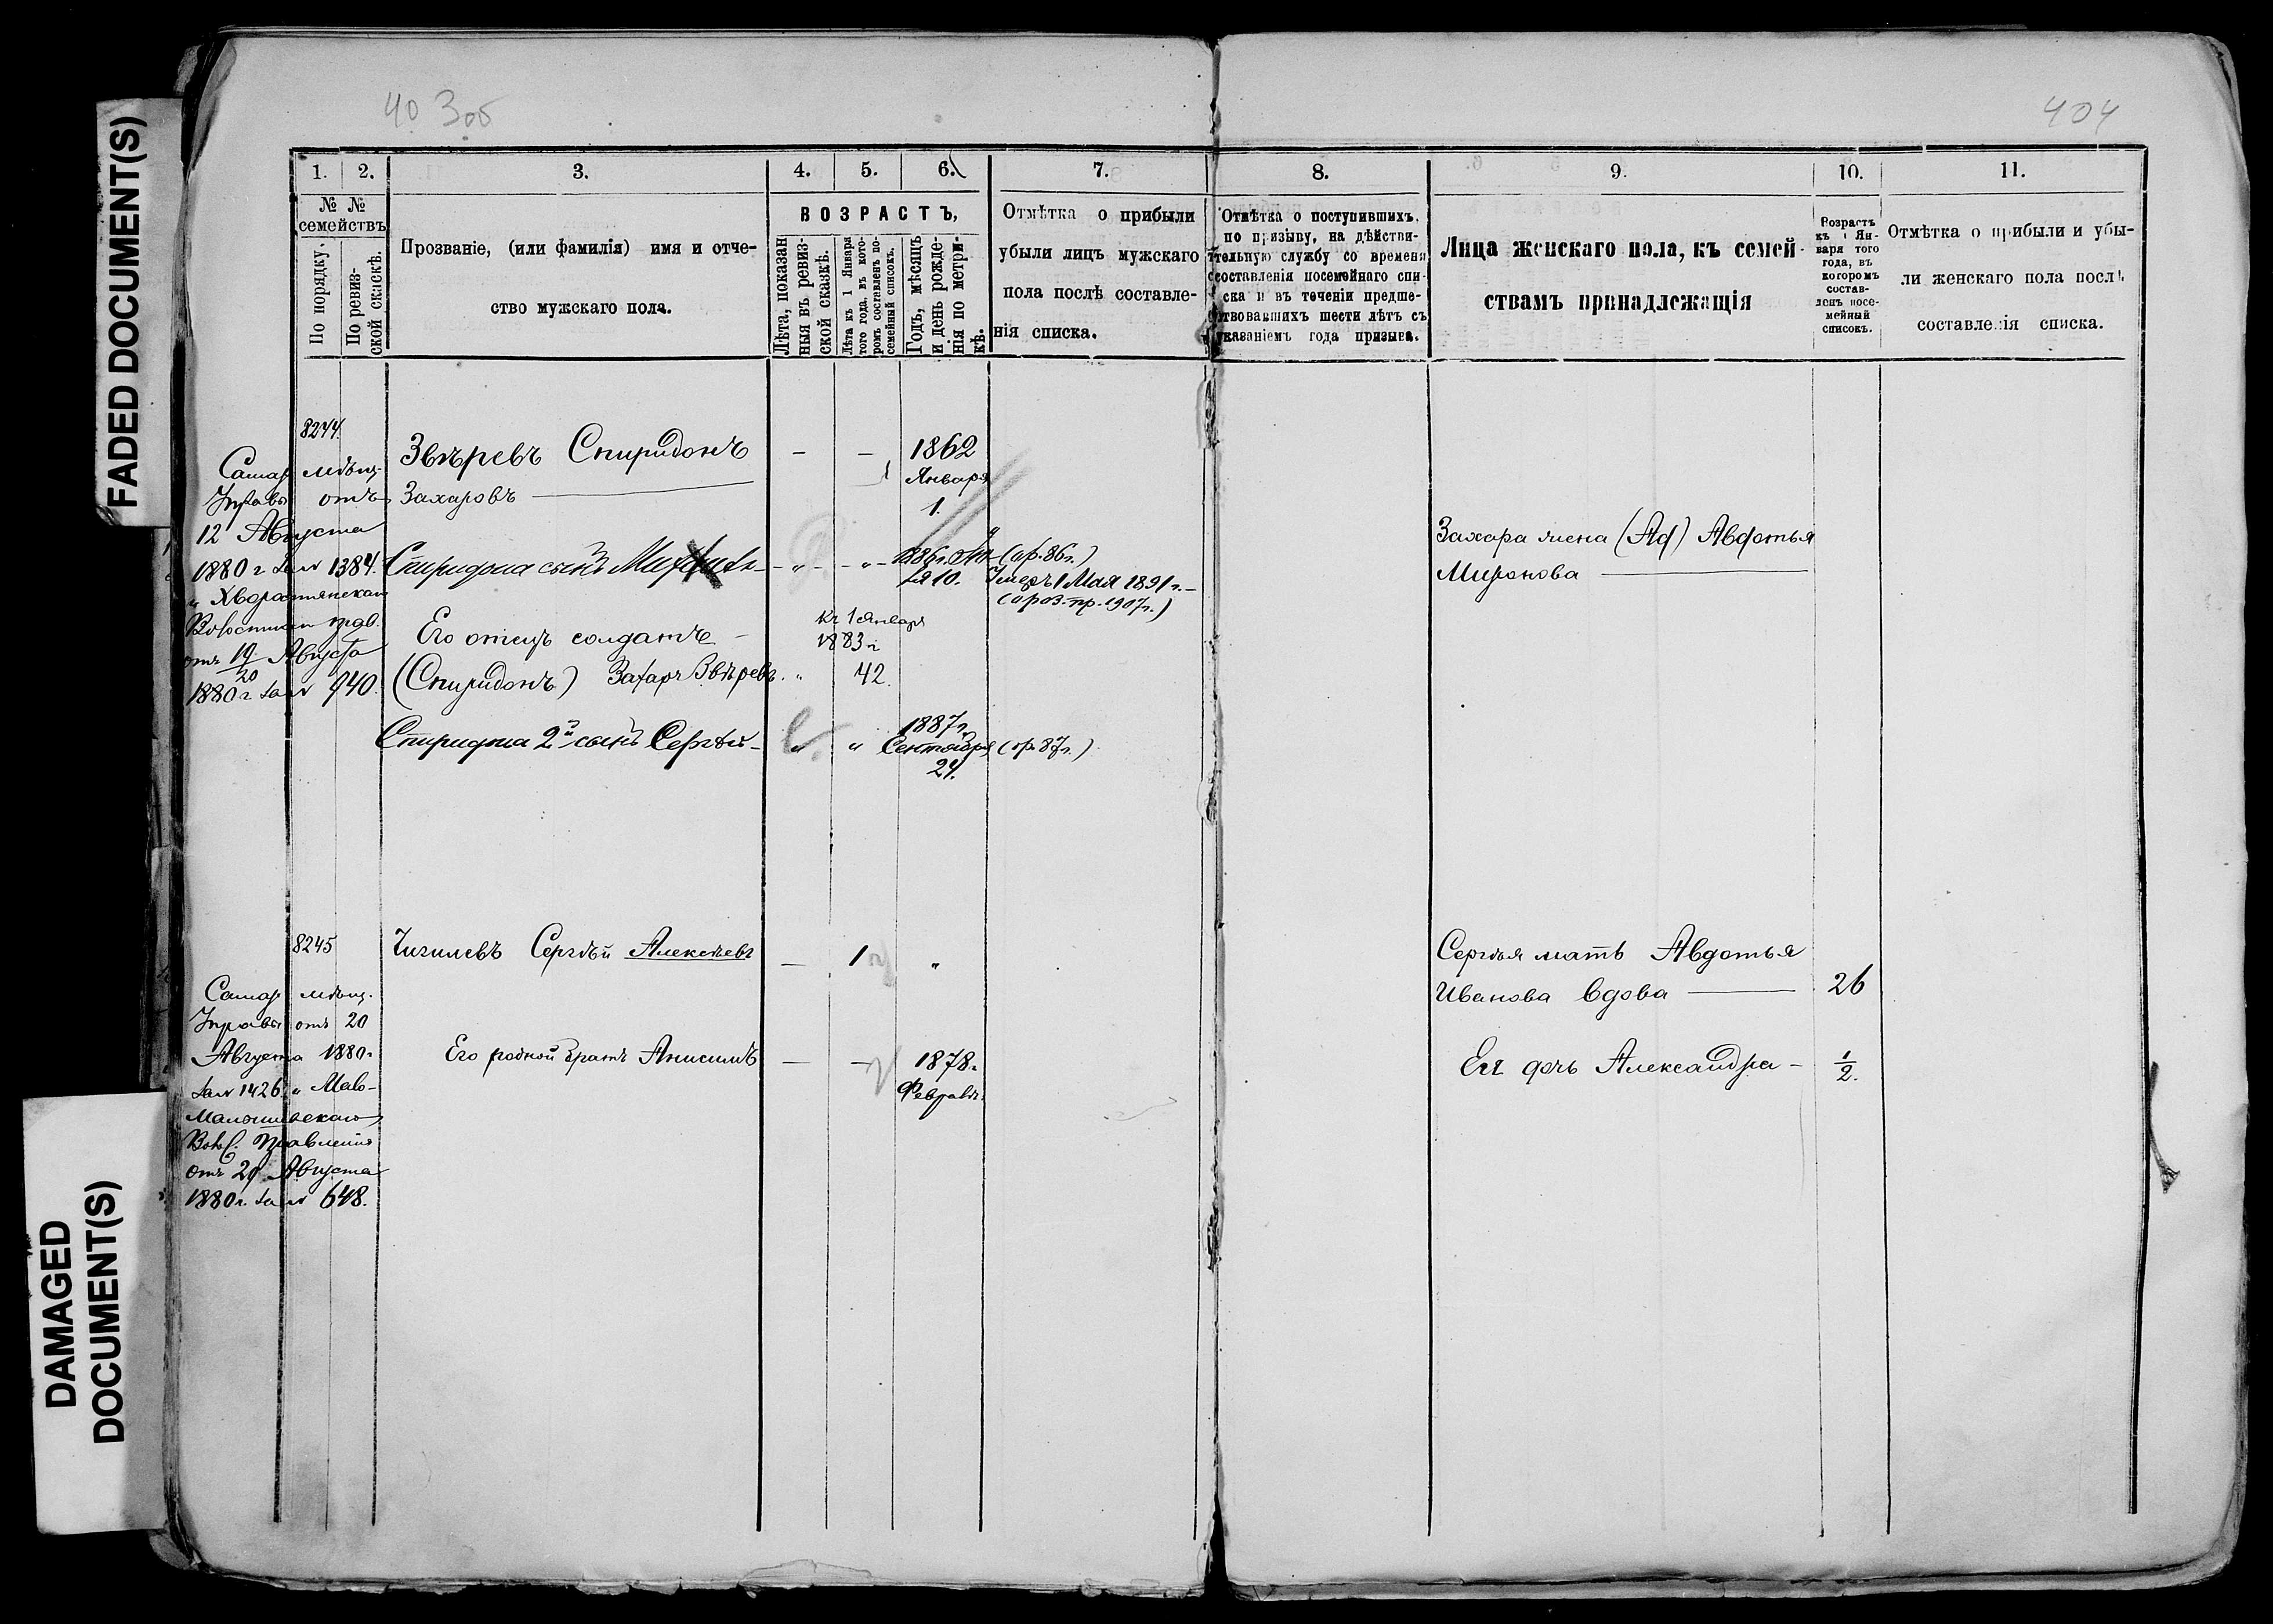 FADED DOCUMENT(S)
DAMAGED
DOCUMENT(S)
40 3об
404
1. 2. 3. 4. 5. 6. 7. 8. 9. 10. 11.
№ №
семействъ
По порядку.
По ревиз-
ской сказкѣ.
Прозваніе, (или фамилія) имя и отче-
ство мужскаго пола.
ВОЗРАСТЪ,
Лѣта, показан
ныя въ ревиз-
ской сказкѣ.
Лѣта къ 1 Января
того года, въ кото-
ромъ составленъ по-
семейный списокъ.
Годъ, мѣсяцъ
и день рожде-
нія по метри-
кѣ.
Отмѣтка о прибыли
убыли лицъ мужскаго
пола послѣ составле-
нія списка.
Отмѣтка о поступившихъ
по призыву, на дѣйстви-
тельную службу со времени
составленія посемейнаго спи-
ска и въ теченіи предше-
ствовавшихъ шести лѣтъ съ
указаніемъ года призыва.
Лица женскаго пола, къ семей-
ствамъ принадлежащія
Возрастъ
къ 1 Ян-
варя того
года, въ
которомъ
состав-
ленъ посе-
мейный
списокъ.
Отмѣтка о прибыли и убы-
ли женскаго пола послѣ
составленія списка.
8244.
Самар мѣщ.
Управы отъ
12 Августа
1880 г за № 1384.
" Хворостянскаго
Волостнаго прав.
отъ 19/20 Августа
1880 г за № 940.
Звѣревъ Спиридонъ — — 1862
Января
1.
Захаровъ
Спиридона сынъ — " — " — 1886г.
10.
(пр. 86г.)
Умеръ 1 Мая 1891 г.
(пр. 1907г.)
Его отецъ солдатъ —
къ 1 Января
1883 г
(Спиридонъ) Захаръ Звѣревъ. " 42.
Спиридона 2й сынъ Сергѣй — " " 1887г.
Сентября
24.
(пр. 87г.)
Захара жена (Ад) Авдотья
Миронова
8245
Самар мѣщ.
Управы отъ 20
Августа 1880 г
за № 1426. " Мало-
Малышевскаго
Вол. Правленія
отъ 29 Августа
1880 г. за № 648.
Чигилевъ Сергѣй Алексѣевъ — 1 "
Его родной братъ Анисимъ — — 1878 г
Февраля
Сергѣя мать Авдотья
Иванова вдова 26
Ея дочь Александра — 1/2.